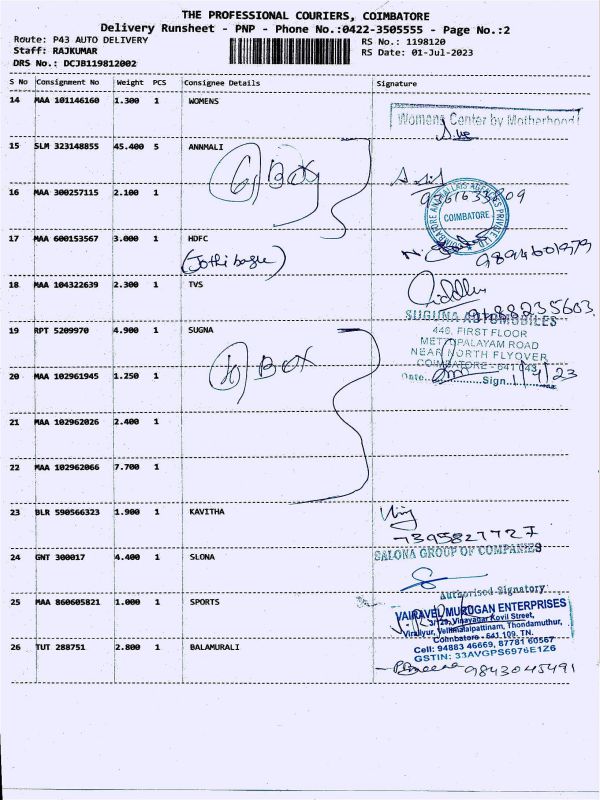 THE PROFESSIONAL COURIERS, COIMBATORE
Delivery Runsheet - PNP - Phone No.:0422-3505555 - Page No.:2
Route: P43 AUTO DELIVERY RS No.: 1198120
Staff: RAJKUMAR RS Date: 01-Jul-2023
DRS No.: DCJB119812002
S No Consignment No Weight PCS Consignee Details Signature
14 MAA 101146160 1.300 1 WOMENS
Womens Center by Motherhood
15 SLM 323148855 45.400 5 ANNMALI
6) Box
16 MAA 300257115 2.100 1
COIMBATORE
17 MAA 600153567 3.000 1 HDFC
9894601979
18 MAA 104322639 2.300 1 TVS
9488235603
SUGUNA AUTOMOBILES
19 RPT 5209970 4.900 1 SUGNA
446, FIRST FLOOR
METTUPALAYAM ROAD
NEAR NORTH FLYOVER
COIMBATORE - 641 043.
Box
20 MAA 102961945 1.250 1
Date Sign 1/7/23
21 MAA 102962026 2.400 1
22 MAA 102962066 7.700 1
23 BLR 590566323 1.900 1 KAVITHA
7395827727
SALONA GROUP OF COMPANIES
24 GNT 300017 4.400 1 SLONA
Authorised Signatory
25 MAA 860605821 1.000 1 SPORTS
VAIRAVEL MURUGAN ENTERPRISES
3/129, Vinayagar Kovil Street,
Viraliyur, Vellimalaipattinam, Thondamuthur,
Coimbatore - 641 109. TN.
Cell: 94883 46669, 87781 60567
GSTIN: 33AVGPS6976E1Z6
26 TUT 288751 2.800 1 BALAMURALI
9843045491